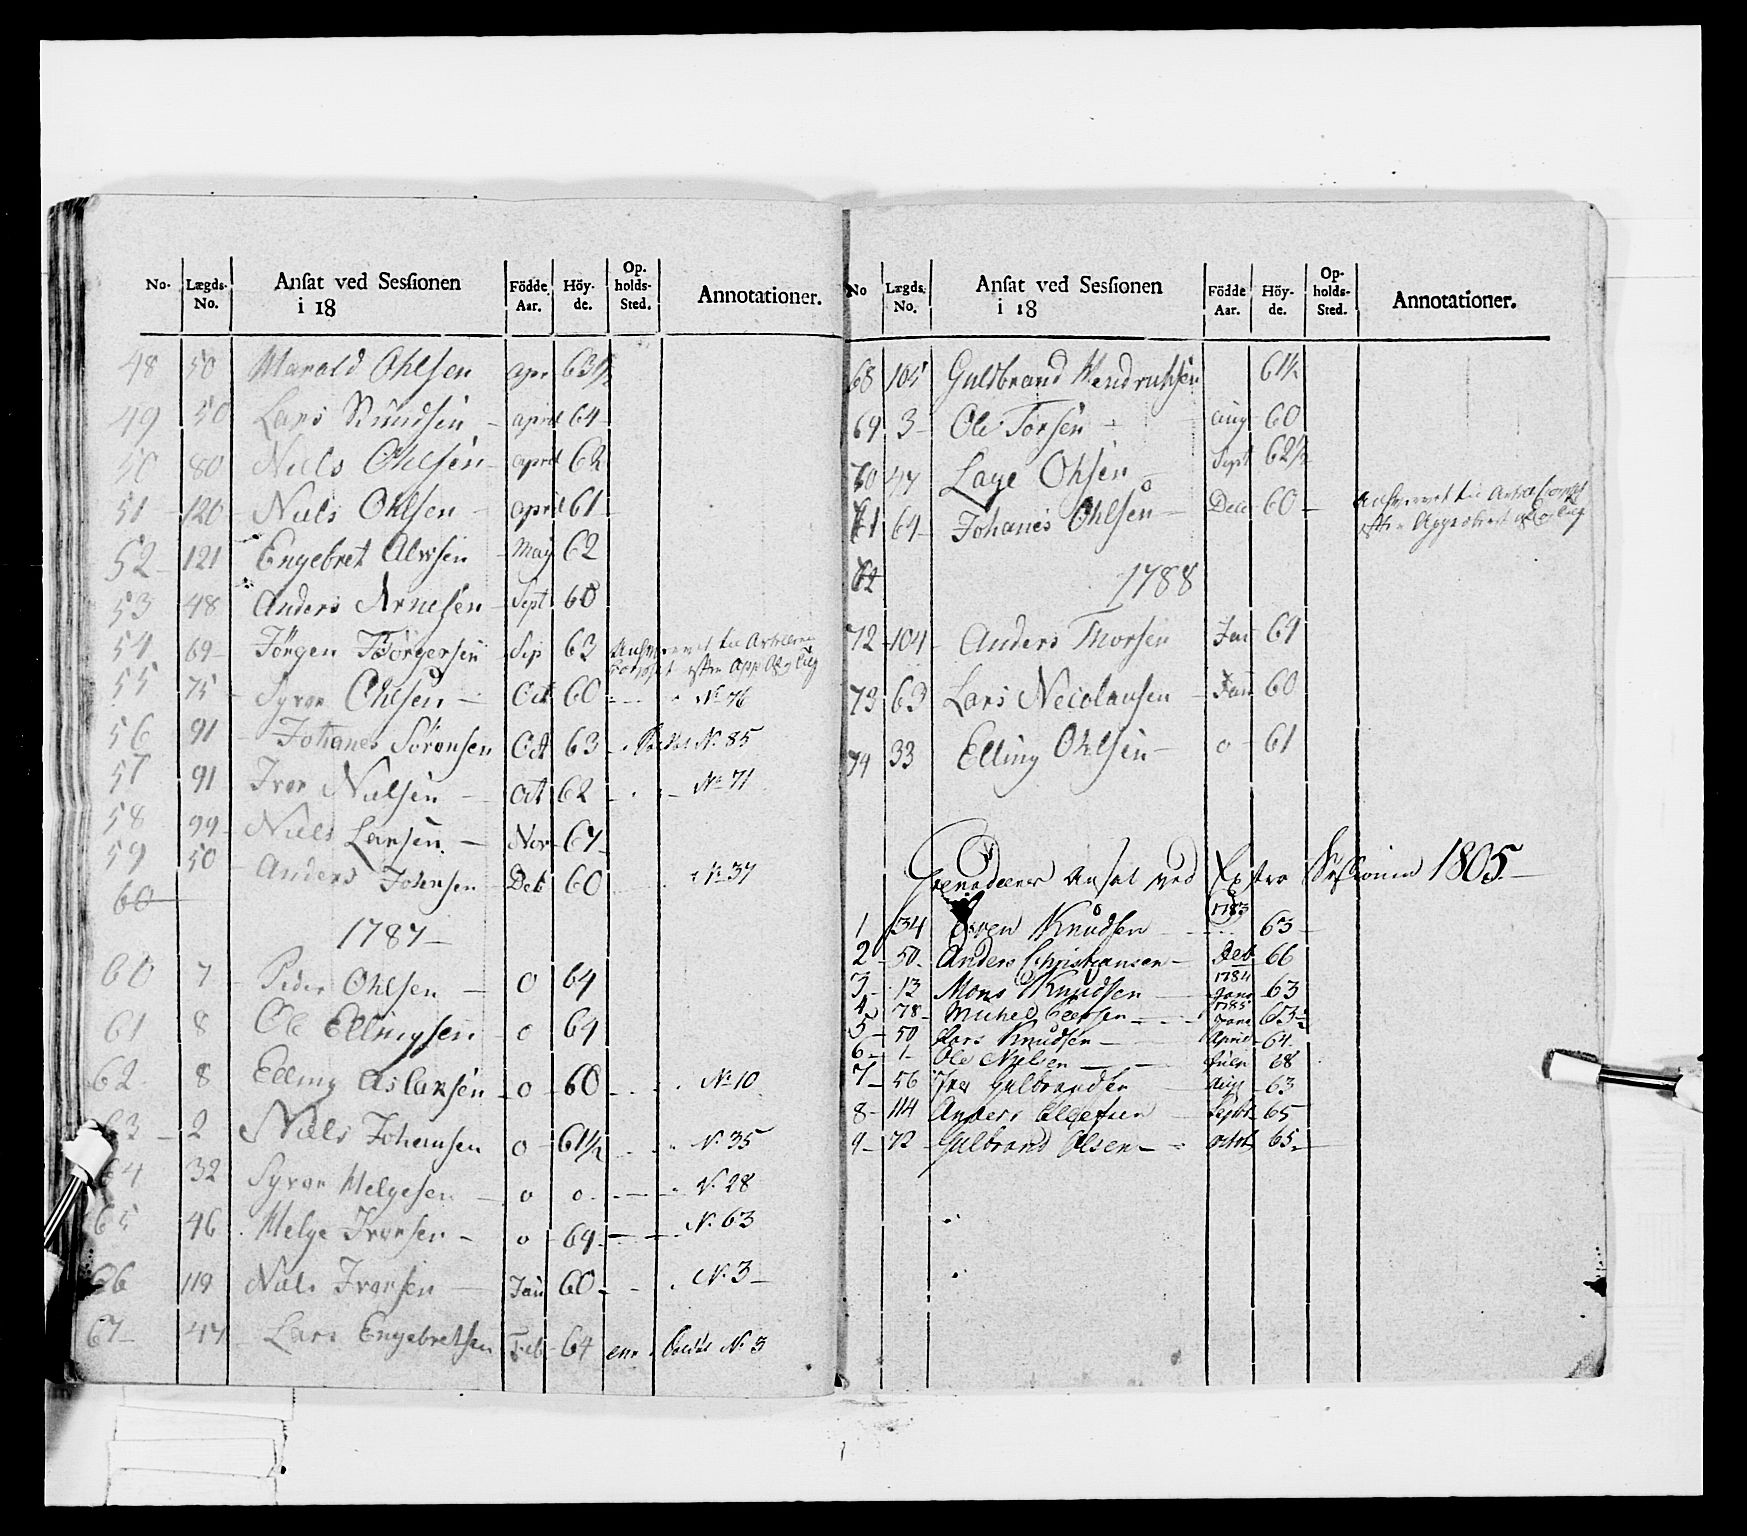 No. Lægds-No. Ansat ved Sessionen i 18 Födde Aar. Höyde. Opholds-Sted. Annotationer.
48 50 Harald Ohlsen apr 63½
49 50 Lars Knudsen - april 64
50 80 Niels Ohlsen - april 62
51 120 Niels Ohlsen - april 61
52 121 Engebret Alvsen - May 62
53 48 Anders Arnesen - Sept 60
54 69 Jörgen Börgersen - Sep 63
55 75 Syver Ohlsen - Oct 60 N: 76
56 91 Johanes Sörensen Oct 63 N: 85
57 91 Iver Nielsen - Oct 62 No 71
58 99 Niels Larsen - Nov 67
59 50 Anders Johnsen - Deb 60 No 37
60
1787
60 7 Peder Ohlsen - o 64
61 8 Ole Ellingsen - o 64
62 8 Elling Aslaksen - o 60 No 10
63 2 Niels Johansen o 61½ N. 35
64 32 Syver Helgesen - o o N. 28
65 46 Helge Iversen - o 64 N. 63
66 119 Niels Iversen - Jan 60 N. 3
67 47 Lars Engebretsen Feb 64 N. 3
No Lægds-No. Ansat ved Sessionen i 18 Födde Aar. Höyde. Opholds-Sted. Annotationer.
68 105 Gulbrand Hendrichsen 61½
69 3 Ole Torsen - aug 60
70 47 Lage Ohsen - Sept 62½
71 64 Johanes Ohlsen - Dece 60
72
1788
72 104 Anders Thorsen Jan 64
73 63 Lars Necolausen - Jan 60
74 33 Elling Ohlsen - o 61
Grenadeerer Ansat ved Extra Sessionen 1805
1783
1 134 Sven Knudsen 63
2 50 Anders Christiansen - Deb 66
1784
3 12 Mons Knudsen Janu 63
1785
4 78 Michel Janu 63½
5 50 Lars Knudsen April 64
6 1 Ole Nielsen July 68
7 56 Iver Gulbrandsen Aug 63
8 114 Anders Septbr 65
9 72 Gulbrand Olsen - octob 65